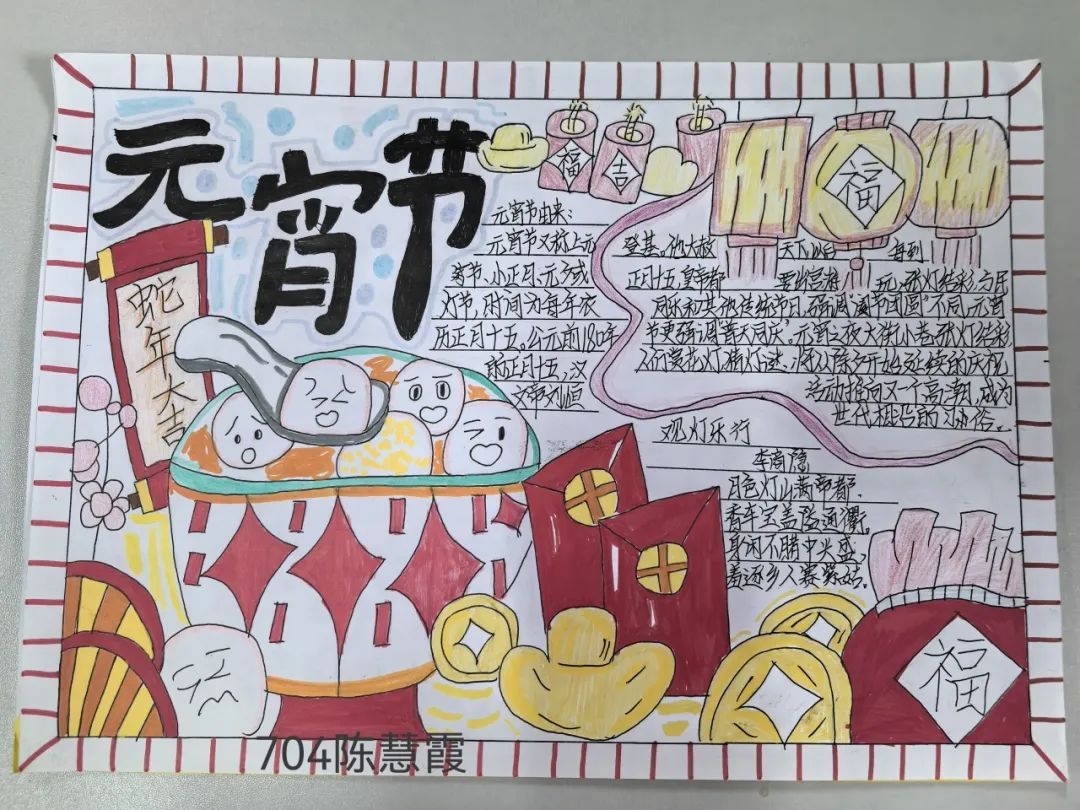 元宵节
福
吉
福
蛇年大吉
元宵节由来：
元宵节又称上元
节、小正月、元夕或
灯节，时间为每年农
历正月十五。公元前180年
的正月十五，汉
文帝刘恒
登基，他大赦
天下
每到
正月十五，皇帝都
要出宫游
玩，张灯结彩，与民
同乐和其他传统节日，强调"阖节团圆"不同，元宵
节更强调"普天同庆"。元宵之夜大街小巷张灯结彩
人们赏花灯，猜灯谜，将从除夕开始延续的庆祝
活动推向又一个高潮，成为
世代相沿的习俗。
观灯乐行
李商隐
月色灯山满帝都，
香车宝盖隘通衢，
身闲不睹中兴盛，
羞逐乡人赛紫姑。
福
704陈慧霞